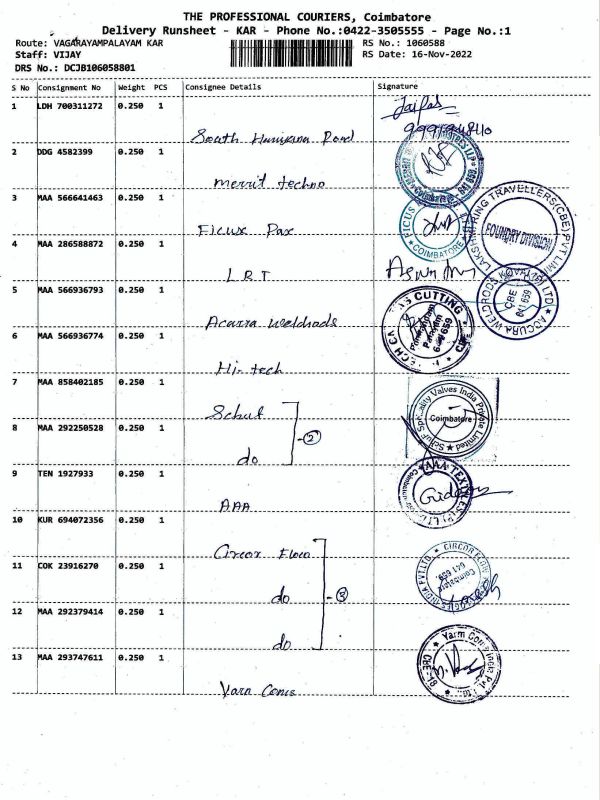 THE PROFESSIONAL COURIERS, Coimbatore
Delivery Runsheet - KAR - Phone No.:0422-3505555 - Page No.:1
Route: VAGARAYAMPALAYAM KAR RS No.: 1060588
Staff: VIJAY RS Date: 16-Nov-2022
DRS No.: DCJB106058801
S No Consignment No Weight PCS Consignee Details Signature
1 LDH 700311272 0.250 1
South
2 DDG 4582399 0.250 1
Merrit techno
3 MAA 566641463 0.250 1
Ficux Pax
FICUS
COIMBATORE
LAKSHMI RING TRAVELLERS(CBE) PVT LIMI
FOUNDRY DIVISION
4 MAA 286588872 0.250 1
L.R.T
5 MAA 566936793 0.250 1
Acurra Weldrods
ACCURA WELDRODS KOVAI (P) LTD
CBE
641 659
6 MAA 566936774 0.250 1
Hi-tech
TECH CUTTING
7 MAA 858402185 0.250 1
Schuf
Schuf Speciality Valves India Private Limited
Coimbatore
8 MAA 292250528 0.250 1
do
-2
9 TEN 1927933 0.250 1
AAA
AAA TEXTILES (P) LTD
Gideon
10 KUR 694072356 0.250 1
Circox Flow
CIRCOR FLOW
641 659
Coimbatore
11 COK 23916270 0.250 1
do
-3
12 MAA 292379414 0.250 1
do
13 MAA 293747611 0.250 1
Yarn Cones
Yarm Cones
CBE-18